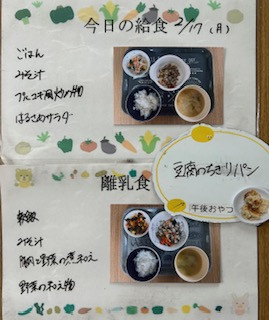 今日の給食 2/17 (月)
ごはん
みそ汁
プルコギ風炒め物
はるさめサラダ
豆腐のちぎりパン
午後おやつ
離乳食
軟飯
みそ汁
豚肉と野菜の煮和え
野菜の和え物